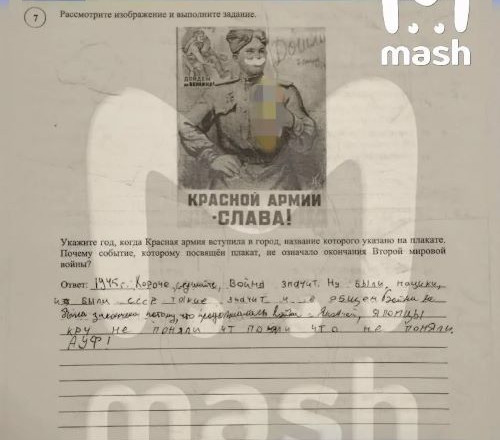 mash
7
Рассмотрите изображение и выполните задание.
Дошли
ДОЙДЕМ
до БЕРЛИНА!
КРАСНОЙ АРМИИ
-СЛАВА!
Укажите год, когда Красная армия вступила в город, название которого указано на плакате.
Почему событие, которому посвящён плакат, не означало окончания Второй мировой
войны?
Ответ: 1945г. Короче, слушайте, война значит. Ну были нацики,
были СССР такие значит
закончили потому, что продолжалась война с Японией, японцы
кру не поняли чт поняли что не поняли,
АУФ!
mash